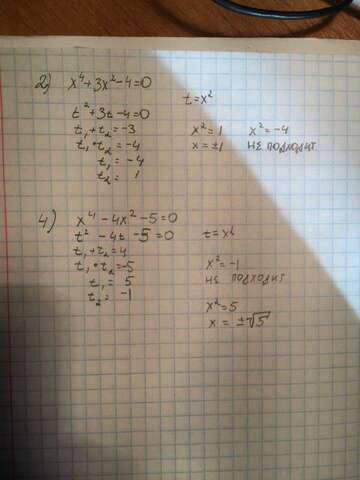 2) x⁴+3x²-4=0
t=x²
t²+3t-4=0
t₁+t₂=-3
t₁·t₂=-4
t₁=-4
t₂=1
x²=1 x²=-4
x=±1 не подходит
4) x⁴-4x²-5=0
t²-4t-5=0 t=x²
t₁+t₂=4
t₁·t₂=-5
t₁=5
t₂=-1
x²=-1
не подходит
x²=5
x=±√5